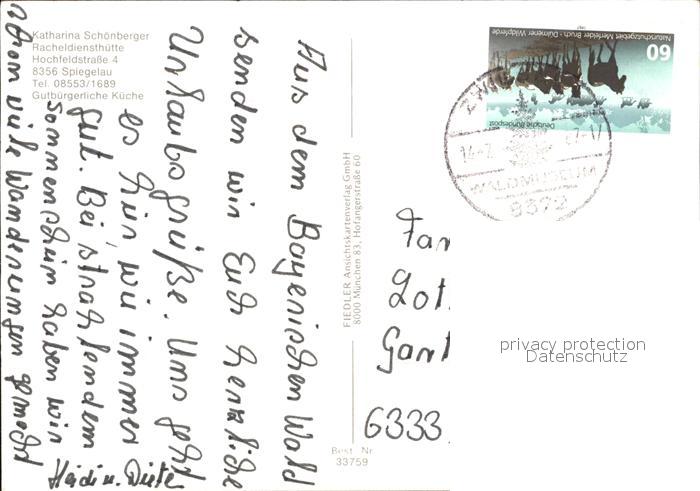 Katharina Schönberger
Racheldiensthütte
Hochfeldstraße 4
8356 Spiegelau
Tel. 08553/1689
Gutbürgerliche Küche
Aus dem Bayerischen Wald
senden wir Euch herzliche
Urlaubsgrüße. Uns geht
es hier, wie immer
gut. Bei strahlendem
Sonnenschein haben wir
schon viele Wanderungen gemacht
Heidi u. Dieter
FIEDLER Ansichtskartenverlag GmbH
8000 München 83, Hofangerstraße 60
Best. Nr.
33759
Naturschutzgebiet Merfelder Bruch - Dülmener Wildpferde
60
Deutsche Bundespost
WALDMUSEUM
8372
Fam
Lot
Gant
6333
privacy protection
Datenschutz